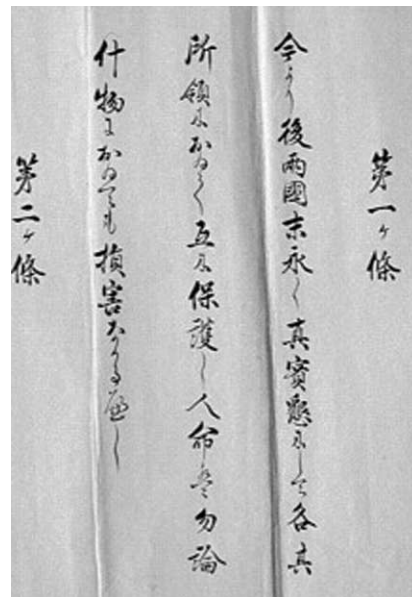 第一ケ條
今より後兩國末永く真實懇にして各其
所領において互に保護し人命は勿論
什物においても損害なかるべし
第二ケ條